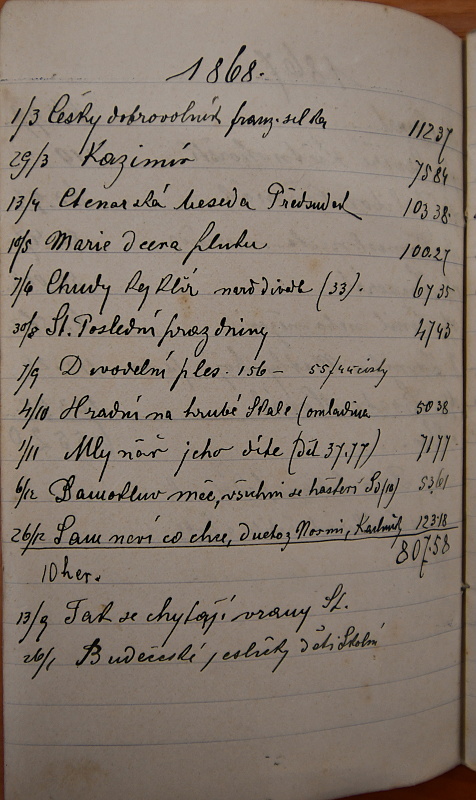 1868.
1/3 Česky dobrovolník franz. selka 112 37
29/3 Kazimír 75 84
13/4 Čtenarská beseda Předsudek 103 38
10/5 Marie dcera pluku 100.27
7/6 Chudy kejklíř narod divadb (33). 67 35
30/8 St. Poslední prazdniny 47 43
7/9 Divadelní ples. 156 — 55/44 čisty
4/10 Hradní na hrubé Skale (omladina 50 38
1/11 Mlynář jeho díte (děl 37.77) 71 77
6/12 meč, všichni se hašteří 53/61
26/12 Sam neví co chce, 123 18
807.58
10 her.
13/9 Tak se chytají vrany St.
26/1 Budečské děti školní